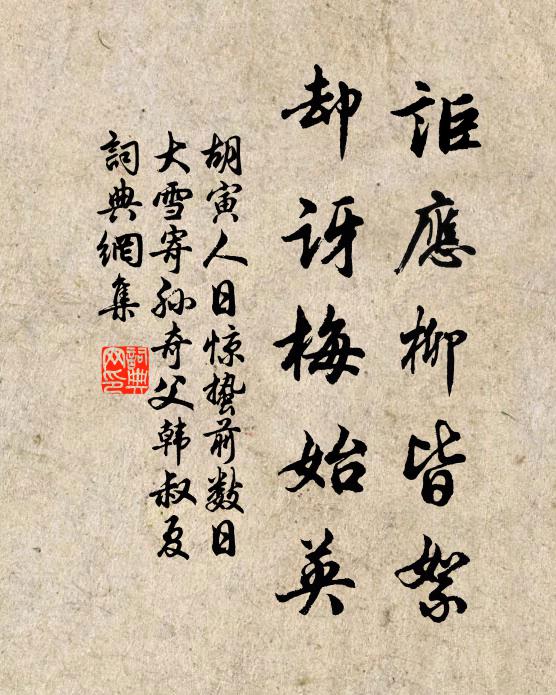 詎應柳皆絮
却訝梅始英
胡寅人日惊蛰前数日
大雪寄孙奇父韩叔夏
詞典網集
詞典
网印